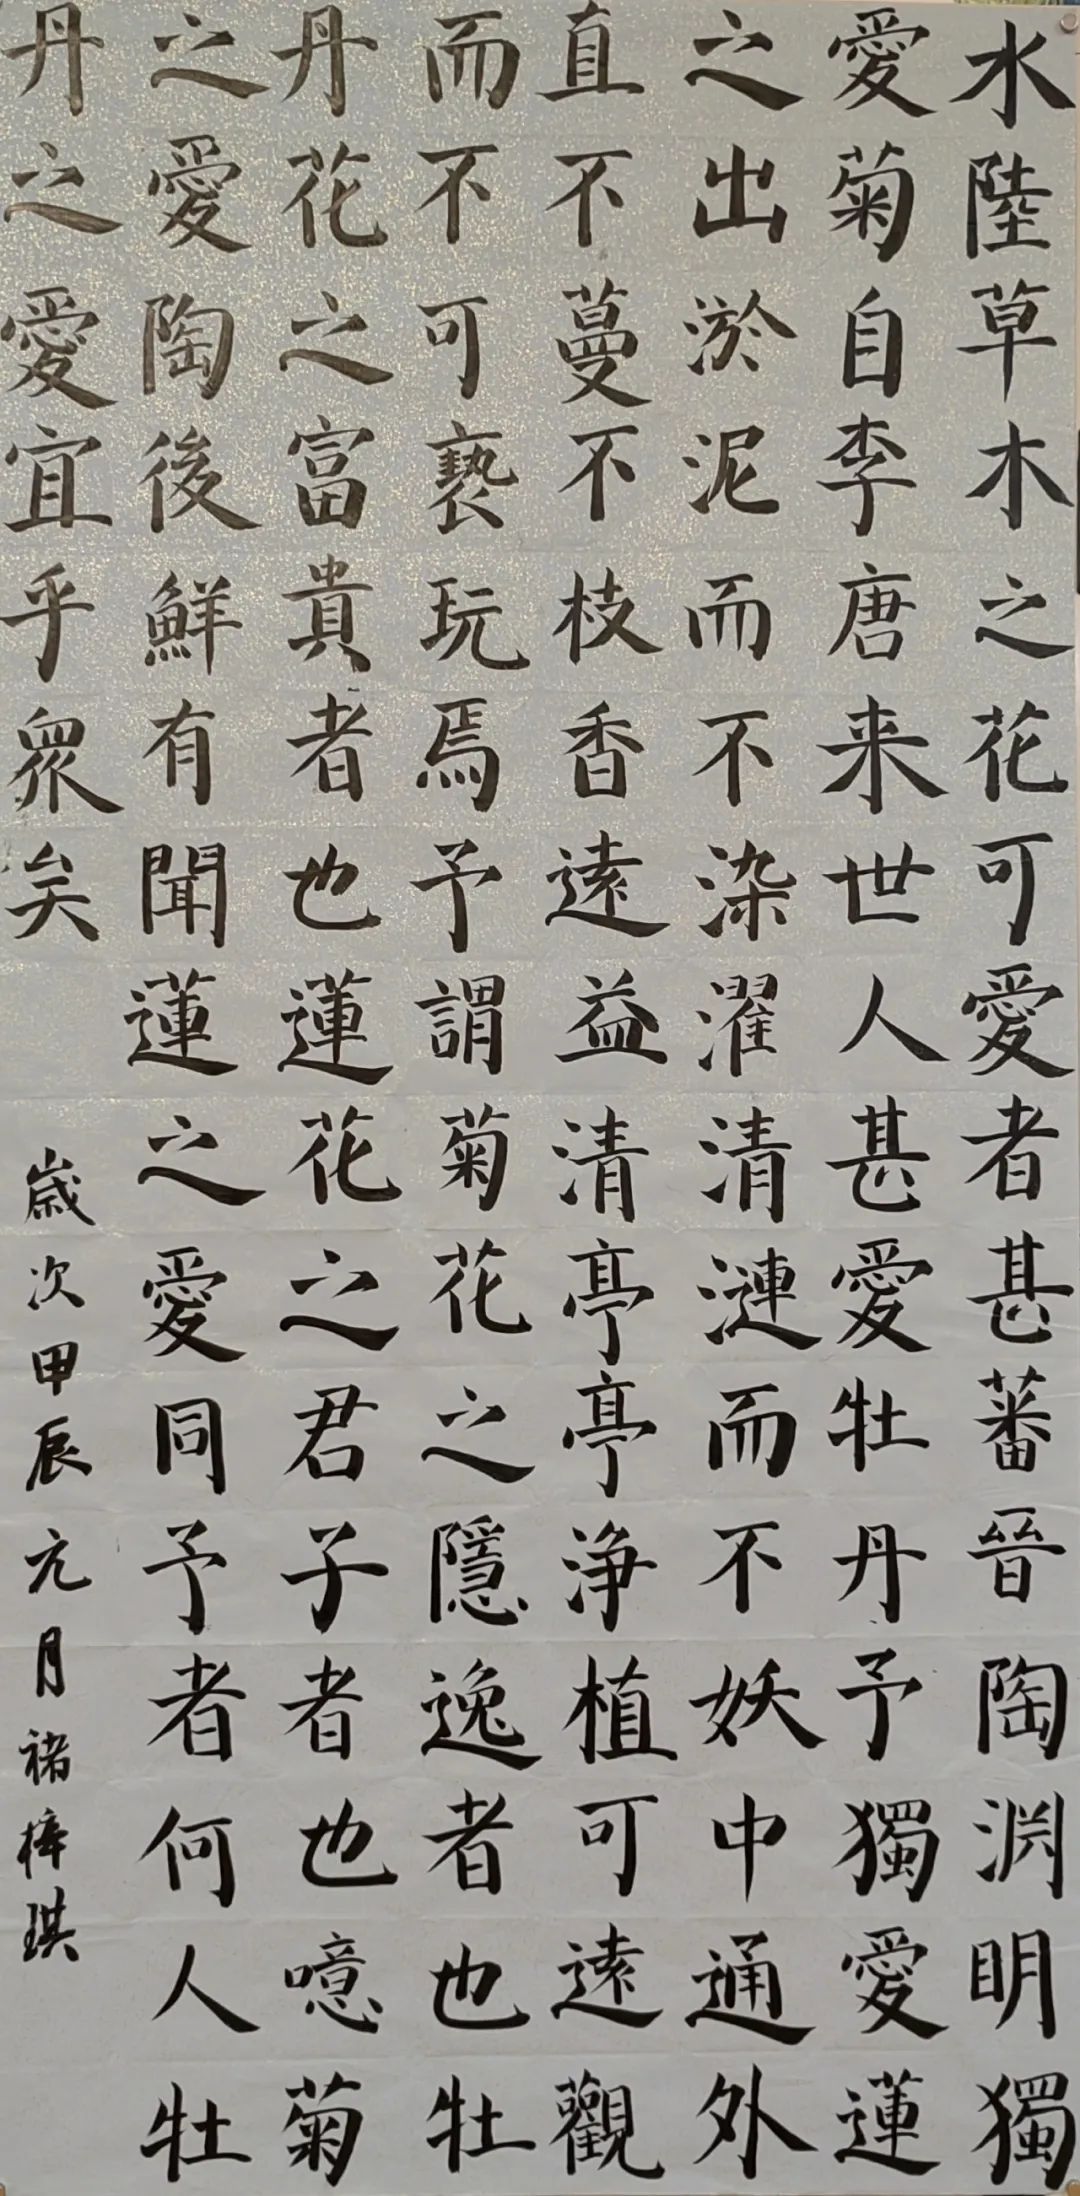 水陸草木之花可愛者甚蕃晉陶渕明獨
愛菊自李唐来世人甚愛牡丹予獨愛蓮
之出淤泥而不染濯清漣而不妖中通外
直不蔓不枝香遠益清亭亭浄植可遠觀
而不可褻玩焉予謂菊花之隱逸者也牡
丹花之富貴者也蓮花之君子者也噫菊
之愛陶後鮮有聞蓮之愛同予者何人牡
丹之愛宜乎眾矣
歲次甲辰元月褚梓琪